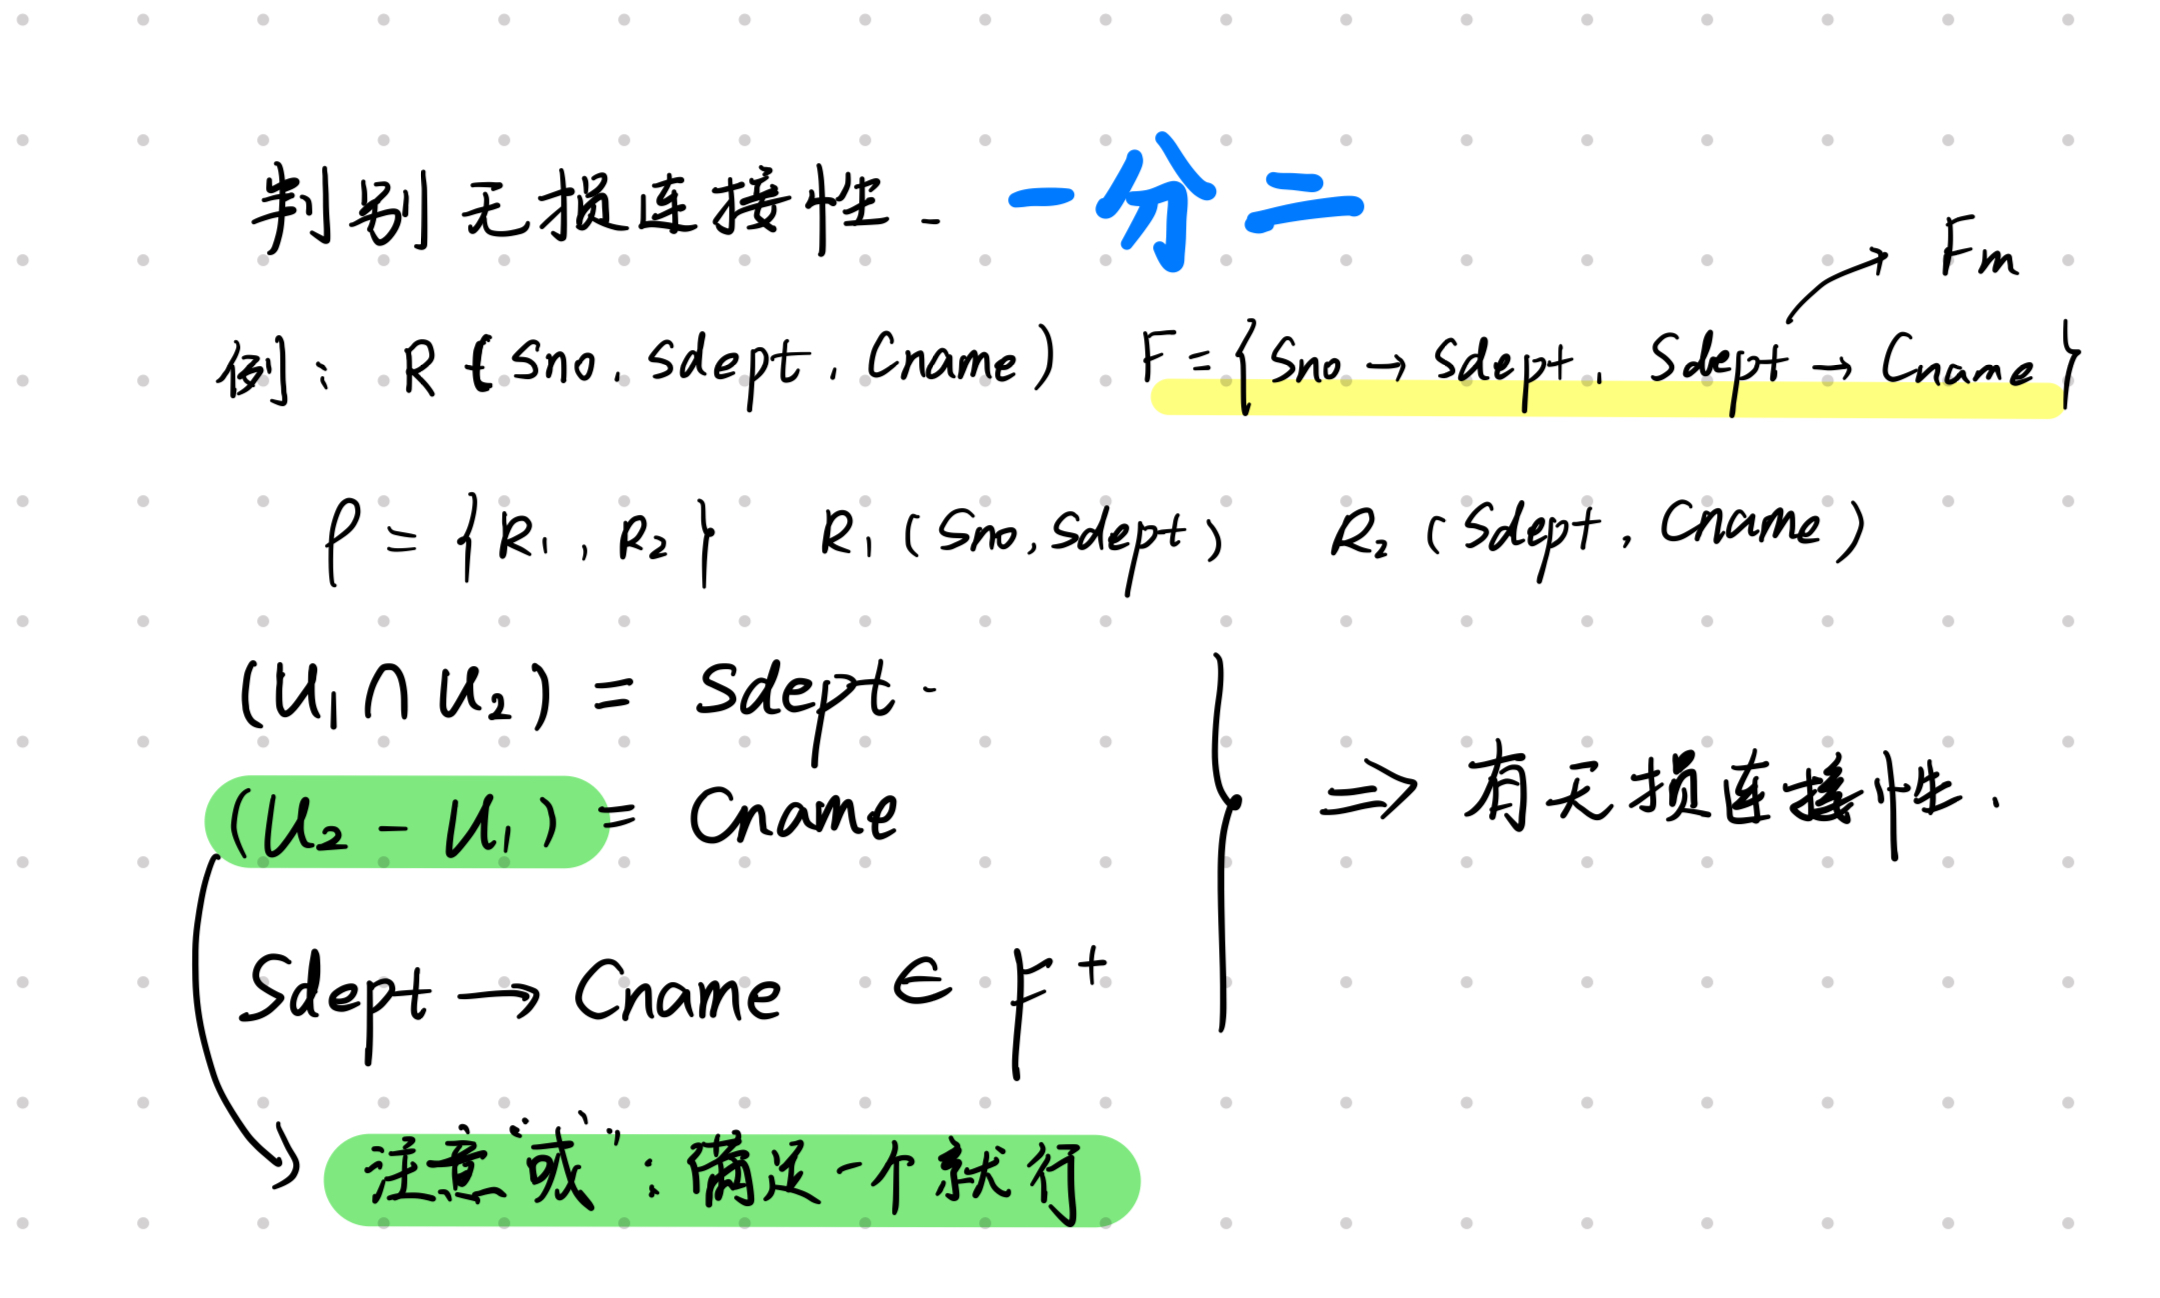 判别无损连接性. 一分二
Fm
例: R (Sno, Sdept, Cname) F = {Sno → Sdept, Sdept → Cname}
ρ = {R₁, R₂} R₁ (Sno, Sdept) R₂ (Sdept, Cname)
(U₁ ∩ U₂) = Sdept.
(U₂ - U₁) = Cname
⇒ 有无损连接性.
Sdept → Cname ∈ F⁺
注意"或": 满足一个就行